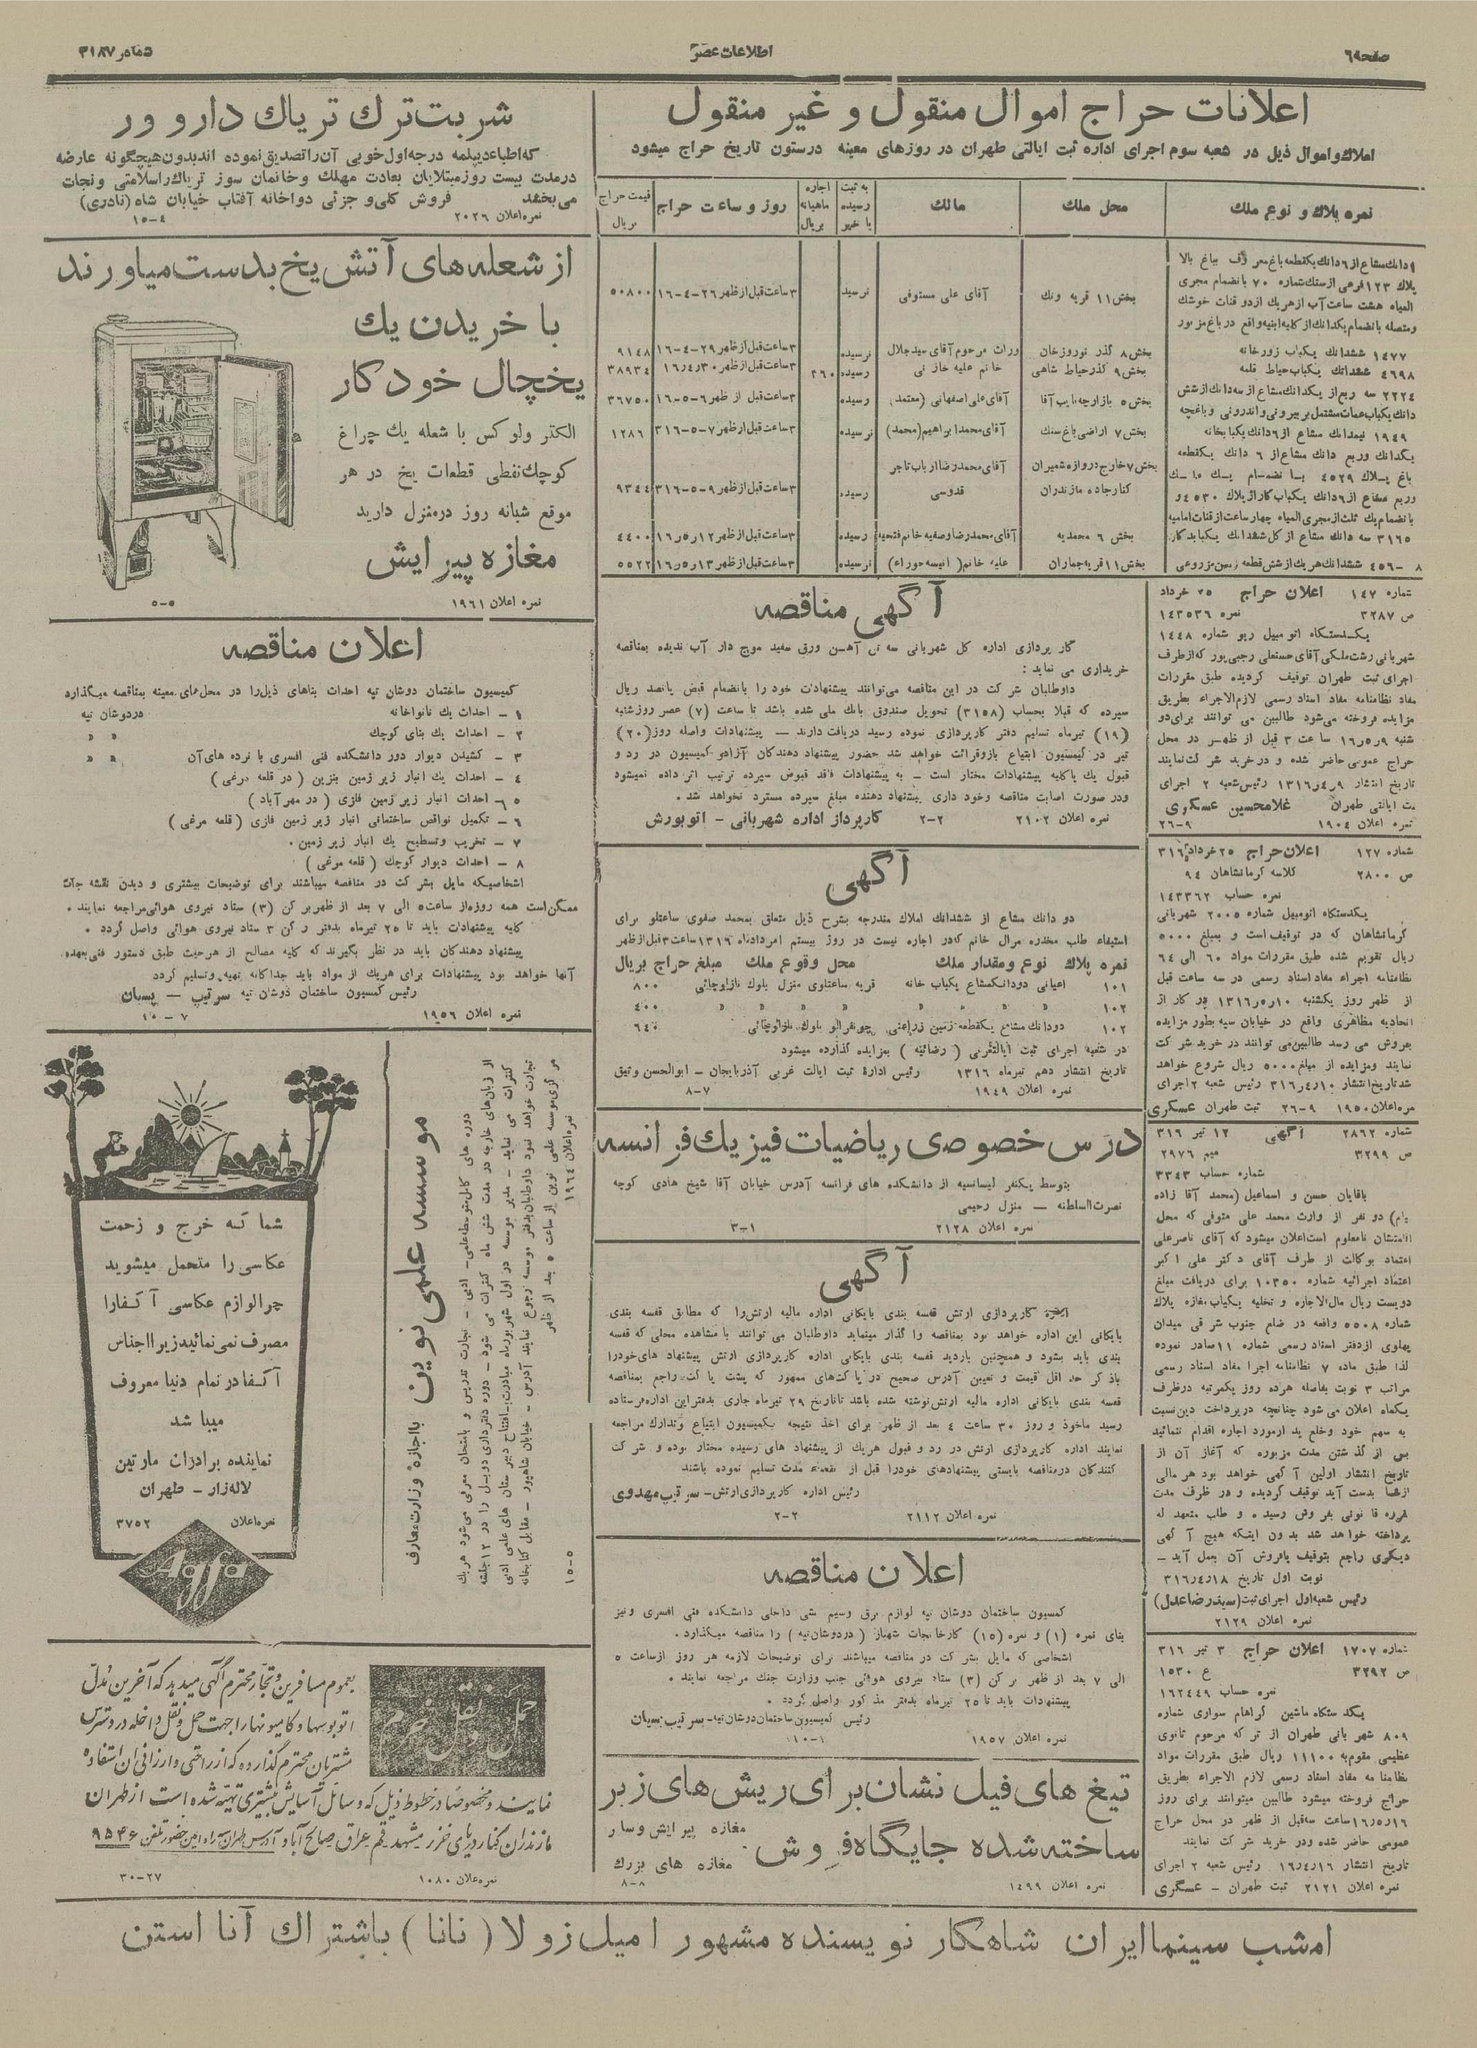 صفحه ۶۹
اطلاعات عصر
شماره ۳۱۸۷
اعلانات حراج اموال منقول و غیر منقول
املاك و اموال ذیل در شعبه سوم اجرای اداره ثبت ایالتی طهران در روزهای معینه درستون تاریخ حراج میشود
نمره پلاك و نوع ملك
محل ملك
مالك
به ثبت رسیده یا خیر
اجاره ماهیانه بریال
روز و ساعت حراج
قیمت حراج بریال
بخش ۱۱ قریه ونك
آقای علی مستوفی
نرسید
۳ساعت قبل از ظهر ۲۶-۴-۱۶
۵۰۸۰۰
۱۴۷۷ ششدانك یکباب زورخانه
بخش ۸ گذر نوروزخان
وراث مرحوم آقای سید جلال
نرسیده
۳ساعت قبل از ظهر ۲۹-۴-۱۶
۹۱۴۸
۴۶۹۸ ششدانك یکباب حیاط
بخش ۹ گذر حیاط شاهی
رسیده
۲۶۰
۳ساعت قبل از ظهر ۱۶٫۴٫۳۰
۳۸۹۳۴
۲۲۲۴ سه ربع از یکدانك مشاع از سه دانك از شش
بخش ۵ بازارچه نایب آقا
آقای علی اصفهانی (معتمد)
رسیده
۳ساعت قبل از ظهر ۶-۵-۱۶
۳۶۷۵۰
بخش ۷ اراضی باغ سنك
آقای محمد ابراهیم (محمد)
نرسیده
۳ساعت قبل از ظهر ۷-۵-۳۱۶
۱۲۸۶
بخش ۷ خارج دروازه شمیران
کنار جاده مازندران
آقای محمدرضا ارباب تاجر
قدوسی
رسیده
۳ساعت قبل از ظهر ۹-۵-۳۱۶
۹۳۴۴
بخش ۶ محمدیه
رسیده
۳ساعت قبل از ظهر ۱۶٫۵٫۱۲
۴۴۰۰
بخش ۱۱ قریه جماران
نرسیده
۳ساعت قبل از ظهر ۱۶٫۵٫۱۳
۵۵۲۲
شماره ۱۴۷ اعلان حراج ۲۵ خرداد
ص ۳۲۸۷ نمره ۱۴۳۵۳۶
یکدستگاه اتومبیل ریو شماره ۱۴۴۸
شهربانی رشت ملکی آقای حسنعلی رجبی پور که از طرف
اجرای ثبت طهران توقیف گردیده طبق مقررات
مفاد نظامنامه مفاد اسناد رسمی لازم الاجراء بطریق
مزایده فروخته می شود طالبین می توانند برای دو
شنبه ۱۶٫۵٫۹ ساعت ۳ قبل از ظهر در محل
حراج عمومی حاضر شده و در خرید شرکت نمایند
تاریخ انتشار ۱۳۱۶٫۴٫۹ رئیس شعبه ۲ اجرای
ثبت ایالتی طهران غلامحسین عسکری
نمره اعلان ۱۹۰۴ ۹-۲۶
شماره ۱۲۷ اعلان حراج ۲۵ خرداد ۳۱۶
ص ۲۸۰۰ کلاسه کرمانشاهان ۹۴
نمره حساب ۱۴۳۳۶۲
یکدستگاه اتومبیل شماره ۲۰۰۵ شهربانی
کرمانشاهان که در توقیف است و بمبلغ ۵۰۰۰
ریال تقویم شده طبق مقررات مواد ۶۰ الی ۶۴
نظامنامه اجراء مفاد اسناد رسمی در سه ساعت قبل
از ظهر روز یکشنبه ۱۳۱۶٫۵٫۱۰ در کار از
اتحادیه مظاهری واقع در خیابان سپه بطور مزایده
بفروش می رسد طالبین می توانند در خرید شرکت
نمایند ومزایده از مبلغ ۵۰۰۰ ریال شروع خواهد
شد تاریخ انتشار ۳۱۶٫۴٫۱۰ رئیس شعبه ۲ اجرای
نمره اعلان ۱۹۵۰ ۹-۲۶ ثبت طهران عسکری
شماره ۲۸۶۲ آگهی ۱۲ تیر ۳۱۶
ص ۳۲۹۹ میم ۲۹۷۶
شماره حساب ۳۳۴۳
باقایان حسن و اسماعیل (محمد آقا زاده
دو نفر از وارث محمد علی متوفی که محل
اقامتشان نامعلوم است اعلان میشود که آقای ناصر علی
اعتماد بوکالت از طرف آقای دکتر علی اکبر
اعتماد اجرائیه شماره ۱۰۳۵۰ برای دریافت مبلغ
دویست ریال مال الاجاره و تخلیه یکباب مغازه پلاك
شماره ۵۵۰۸ واقعه در ضلع جنوب شرقی میدان
پهلوی از دفتر اسناد رسمی شماره ۱۱ صادر نموده
لذا طبق ماده ۷ نظامنامه اجرا مفاد اسناد رسمی
مراتب ۳ نوبت بفاصله هرده روز یکمرتبه درظرف
یکماه اعلان می شود چنانچه در پرداخت دین نسبت
به سهم خود وخلع ید از مورد اجاره اقدام ننمائید
پس از گذشتن مدت مزبوره که آغاز آن از
تاریخ انتشار اولین آگهی خواهد بود هر مالی
از شما بدست آید توقیف گردیده و در ظرف مدت
مقرره قانونی بفروش رسیده و طلب متعهد له
پرداخته خواهد شد بدون اینکه هیچ آگهی
دیگری راجع بتوقیف یا فروش آن بعمل آید -
نوبت اول تاریخ ۳۱۶٫۴٫۱۸
رئیس شعبه اول اجرای ثبت (سیدرضا عدل)
نمره اعلان ۲۱۲۹
شماره ۱۷۰۷ اعلان حراج ۳ تیر ۳۱۶
ص ۳۲۹۲ ع ۱۵۳۰
نمره حساب ۱۶۲۴۴۹
یکدستگاه ماشین گراهام سواری شماره
۸۰۹ شهربانی طهران از ترکه مرحوم
عظیمی مقوم به ۱۱۱۰۰ ریال طبق مقررات مواد
نظامنامه مفاد اسناد رسمی لازم الاجراء بطریق
حراج فروخته میشود طالبین میتوانند برای روز
۱۶٫۵٫۱۶ ساعت سه قبل از ظهر در محل حراج
عمومی حاضر شده ودر خرید شرکت نمایند
تاریخ انتشار ۱۶٫۴٫۱۶ رئیس شعبه ۲ اجرای
نمره اعلان ۲۱۲۱ ثبت طهران - عسگری
آگهی مناقصه
کار پردازی اداره کل شهربانی سه تن آهن ورق سفید موج دار آب ندیده بمناقصه
خریداری می نماید :
داوطلبان شرکت در این مناقصه می‌توانند پیشنهادات خود را بانضمام قبض پانصد ریال
سپرده که قبلا بحساب (۳۱۵۸) تحویل صندوق بانك ملی شده باشد تا ساعت (۷) عصر روز شنبه
(۱۹) تیرماه تسلیم دفتر کارپردازی نموده رسید دریافت دارند - پیشنهادات واصله روز (۲۰)
تیر در کمیسیون ابتیاع باز و قرائت خواهد شد حضور پیشنهاد دهندگان آزاد و کمیسیون در رد و
قبول یك یا کلیه پیشنهادات مختار است - به پیشنهادات فاقد قبوض سپرده ترتیب اثر داده نمیشود
ودر صورت اصابت مناقصه وخود داری پیشنهاد دهنده مبلغ سپرده مسترد نخواهد شد .
نمره اعلان ۲۱۰۲ ۲-۲ کارپرداز اداره شهربانی - اتوبورش
آگهی
دو دانك مشاع از ششدانك املاك مندرجه بشرح ذیل متعلق بمحمد صفوی ساعتلو برای
استیفاء طلب مخدره مرال خانم که در اجاره نیست در روز بیستم امرداد ماه ۱۳۱۶ ساعت ۳ قبل از ظهر
نمره پلاك نوع ومقدار ملك محل وقوع ملك مبلغ حراج بریال
۱۰۱ اعیانی دودانك مشاع یکباب خانه قریه ساعتلوی منزل بلوك نازلوچائی ۸۰۰
۱۰۲ » » » » » ۴۰۰
۱۰۲ دودانك مشاع یکقطعه زمین زراعتی چونقرالو بلوك نازلوچائی ۶۴۰
در شعبه اجرای ثبت ایالت غربی (رضائیه) بمزایده گذارده میشود
تاریخ انتشار دهم تیرماه ۱۳۱۶ رئیس ادارۀ ثبت ایالت غربی آذربایجان - ابوالحسن وثیق
نمره اعلان ۱۹۴۹ ۷-۸
درس خصوصی ریاضیات فیزیك فرانسه
بتوسط یکنفر لیسانسیه از دانشکده های فرانسه آدرس خیابان آقا شیخ هادی کوچه
نصرت السلطنه - منزل رحیمی
نمره اعلان ۲۱۲۸ ۱-۳
آگهی
کارپردازی ارتش قفسه بندی بایگانی اداره مالیه ارتش را که مطابق قفسه بندی
بایگانی این اداره خواهد بود بمناقصه واگذار مینماید داوطلبان می توانند با مشاهده محلی که قفسه
بندی باید بشود و همچنین بازدید قفسه بندی بایگانی اداره کارپردازی ارتش پیشنهاد های خود را
با ذکر حد اقل قیمت و تعیین آدرس صحیح در پاکت های ممهور که پشت پاکت راجع بمناقصه
قفسه بندی بایگانی اداره مالیه ارتش نوشته شده باشد تا تاریخ ۲۹ تیرماه جاری بدفتر این اداره فرستاده
رسید ماخوذ و روز ۳۰ ساعت ۴ بعد از ظهر برای اخذ نتیجه بکمیسیون ابتیاع وتدارك مراجعه
نمایند اداره کارپردازی ارتش در رد و قبول هریك از پیشنهاد های رسیده مختار بوده و شرکت
کنندگان درمناقصه بایستی پیشنهادهای خودرا قبل از انقضاء مدت تسلیم نموده باشند
رئیس اداره کارپردازی ارتش - سرتیپ مهدوی
نمره اعلان ۲۱۱۲ ۲-۲
اعلان مناقصه
کمسیون ساختمان دوشان تپه لوازم برق وسیم کشی داخلی دانشکده فنی افسری ونیز
بنای نمره (۱) و نمره (۱۵) کارخانجات شهباز (دردوشان تپه) را مناقصه میگذارد .
اشخاصی که مایل بشرکت در مناقصه میباشند برای توضیحات لازمه هر روز از ساعت ۵
الی ۷ بعد از ظهر برکن (۳) ستاد نیروی هوائی جنب وزارت جنك مراجعه نمایند .
پیشنهادات باید تا ۲۵ تیرماه بدفتر مذکور واصل گردد .
رئیس کمیسیون ساختمان دوشان تپه - سرتیپ پسیان
نمره اعلان ۱۹۵۷ ۱-۱۰
تیغ های فیل نشان برای ریش های زبر
ساخته شده جایگاه فروش
مغازه پیرایش وسایر
مغازه های بزرك
نمره اعلان ۱۴۹۹ ۸-۸
شربت ترك تریاك داروور
که اطباء دیپلمه درجه اول خوبی آن را تصدیق نموده اند بدون هیچگونه عارضه
درمدت بیست روز مبتلایان بعادت مهلك وخانمان سوز تریاك را سلامتی ونجات
می بخشد فروش کلی و جزئی دواخانه آفتاب خیابان شاه (نادری)
نمره اعلان ۲۰۲۶ ۴-۱۵
از شعله های آتش یخ بدست میاورند
با خریدن یك
یخچال خودکار
الکترولوکس با شعله یك چراغ
کوچك نفطی قطعات یخ در هر
موقع شبانه روز درمنزل دارید
مغازه پیرایش
نمره اعلان ۱۹۶۱ ۵-۵
اعلان مناقصه
کمیسیون ساختمان دوشان تپه احداث بناهای ذیل را در محل های معینه بمناقصه میگذارد
۱ - احداث یك نانواخانه دردوشان تپه
۲ - احداث یك بنای کوچك » »
۳ - کشیدن دیوار دور دانشکده فنی افسری با نرده های آن » »
۴ - احداث یك انبار زیر زمین بنزین (در قلعه مرغی)
۵ - احداث انبار زیر زمین فلزی (در مهرآباد)
۶ - تکمیل نواقص ساختمانی انبار زیر زمین فلزی (قلعه مرغی)
۷ - تخریب وتسطیح یك انبار زیر زمین .
۸ - احداث دیوار کوچك (قلعه مرغی)
اشخاصیکه مایل بشرکت در مناقصه میباشند برای توضیحات بیشتری و دیدن نقشه جات
ممکن است همه روزه از ساعت ۵ الی ۷ بعد از ظهر برکن (۳) ستاد نیروی هوائی مراجعه نمایند .
کلیه پیشنهادات باید تا ۲۵ تیرماه بدفتر رکن ۳ ستاد نیروی هوائی واصل گردد .
پیشنهاد دهندگان باید در نظر بگیرند که کلیه مصالح از هرحیث طبق دستور فنی بعهده
آنها خواهد بود پیشنهادات برای هریك از مواد باید جداگانه تهیه وتسلیم گردد
رئیس کمسیون ساختمان دوشان تپه سرتیپ - پسیان
نمره اعلان ۱۹۵۶ ۷-۱۰
موسسه علمی نوین
با اجازه وزارت معارف
نمره اعلان ۱۹۶۴
۵-۱۵
شما که خرج و زحمت
عکاسی را متحمل میشوید
چرا لوازم عکاسی آکفا را
مصرف نمی نمائید زیرا اجناس
آکفا در تمام دنیا معروف
میباشد
نماینده برادران مارتین
لاله زار - طهران
نمره اعلان ۳۷۵۲
Agfa
حمل و نقل محترم
بعموم مسافرین و تجار محترم آگهی میدهد که آخرین مدل
اتوبوسها و کامیونها را جهت حمل و نقل داخله در دسترس
مشتریان محترم گذارده که از راحتی و ارزانی آن استفاده
نمایند و مخصوصا در خطوط ذیل که وسائل آسایش بیشتری تهیه شده است از طهران
نمره اعلان ۱۰۸۰ ۲۷-۳۰
امشب سینما ایران شاهکار نویسنده مشهور امیل زولا (نانا) باشتراك آنا استن